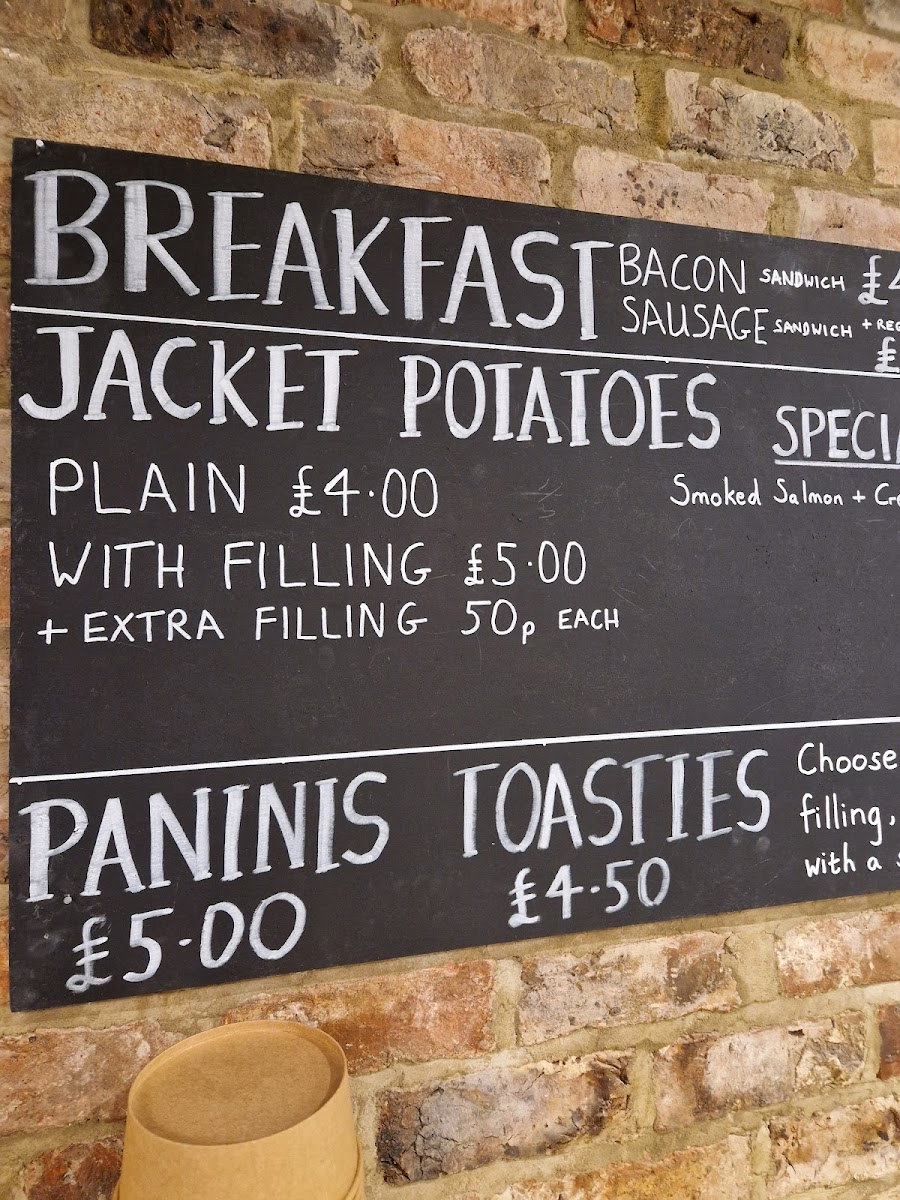 BREAKFAST
BACON SANDWICH £4
SAUSAGE SANDWICH +
£
JACKET POTATOES
SPECIA
PLAIN £4.00
Smoked Salmon +
WITH FILLING £5.00
+ EXTRA FILLING 50p EACH
PANINIS
£5.00
TOASTIES
£4.50
Choose
filling,
with a